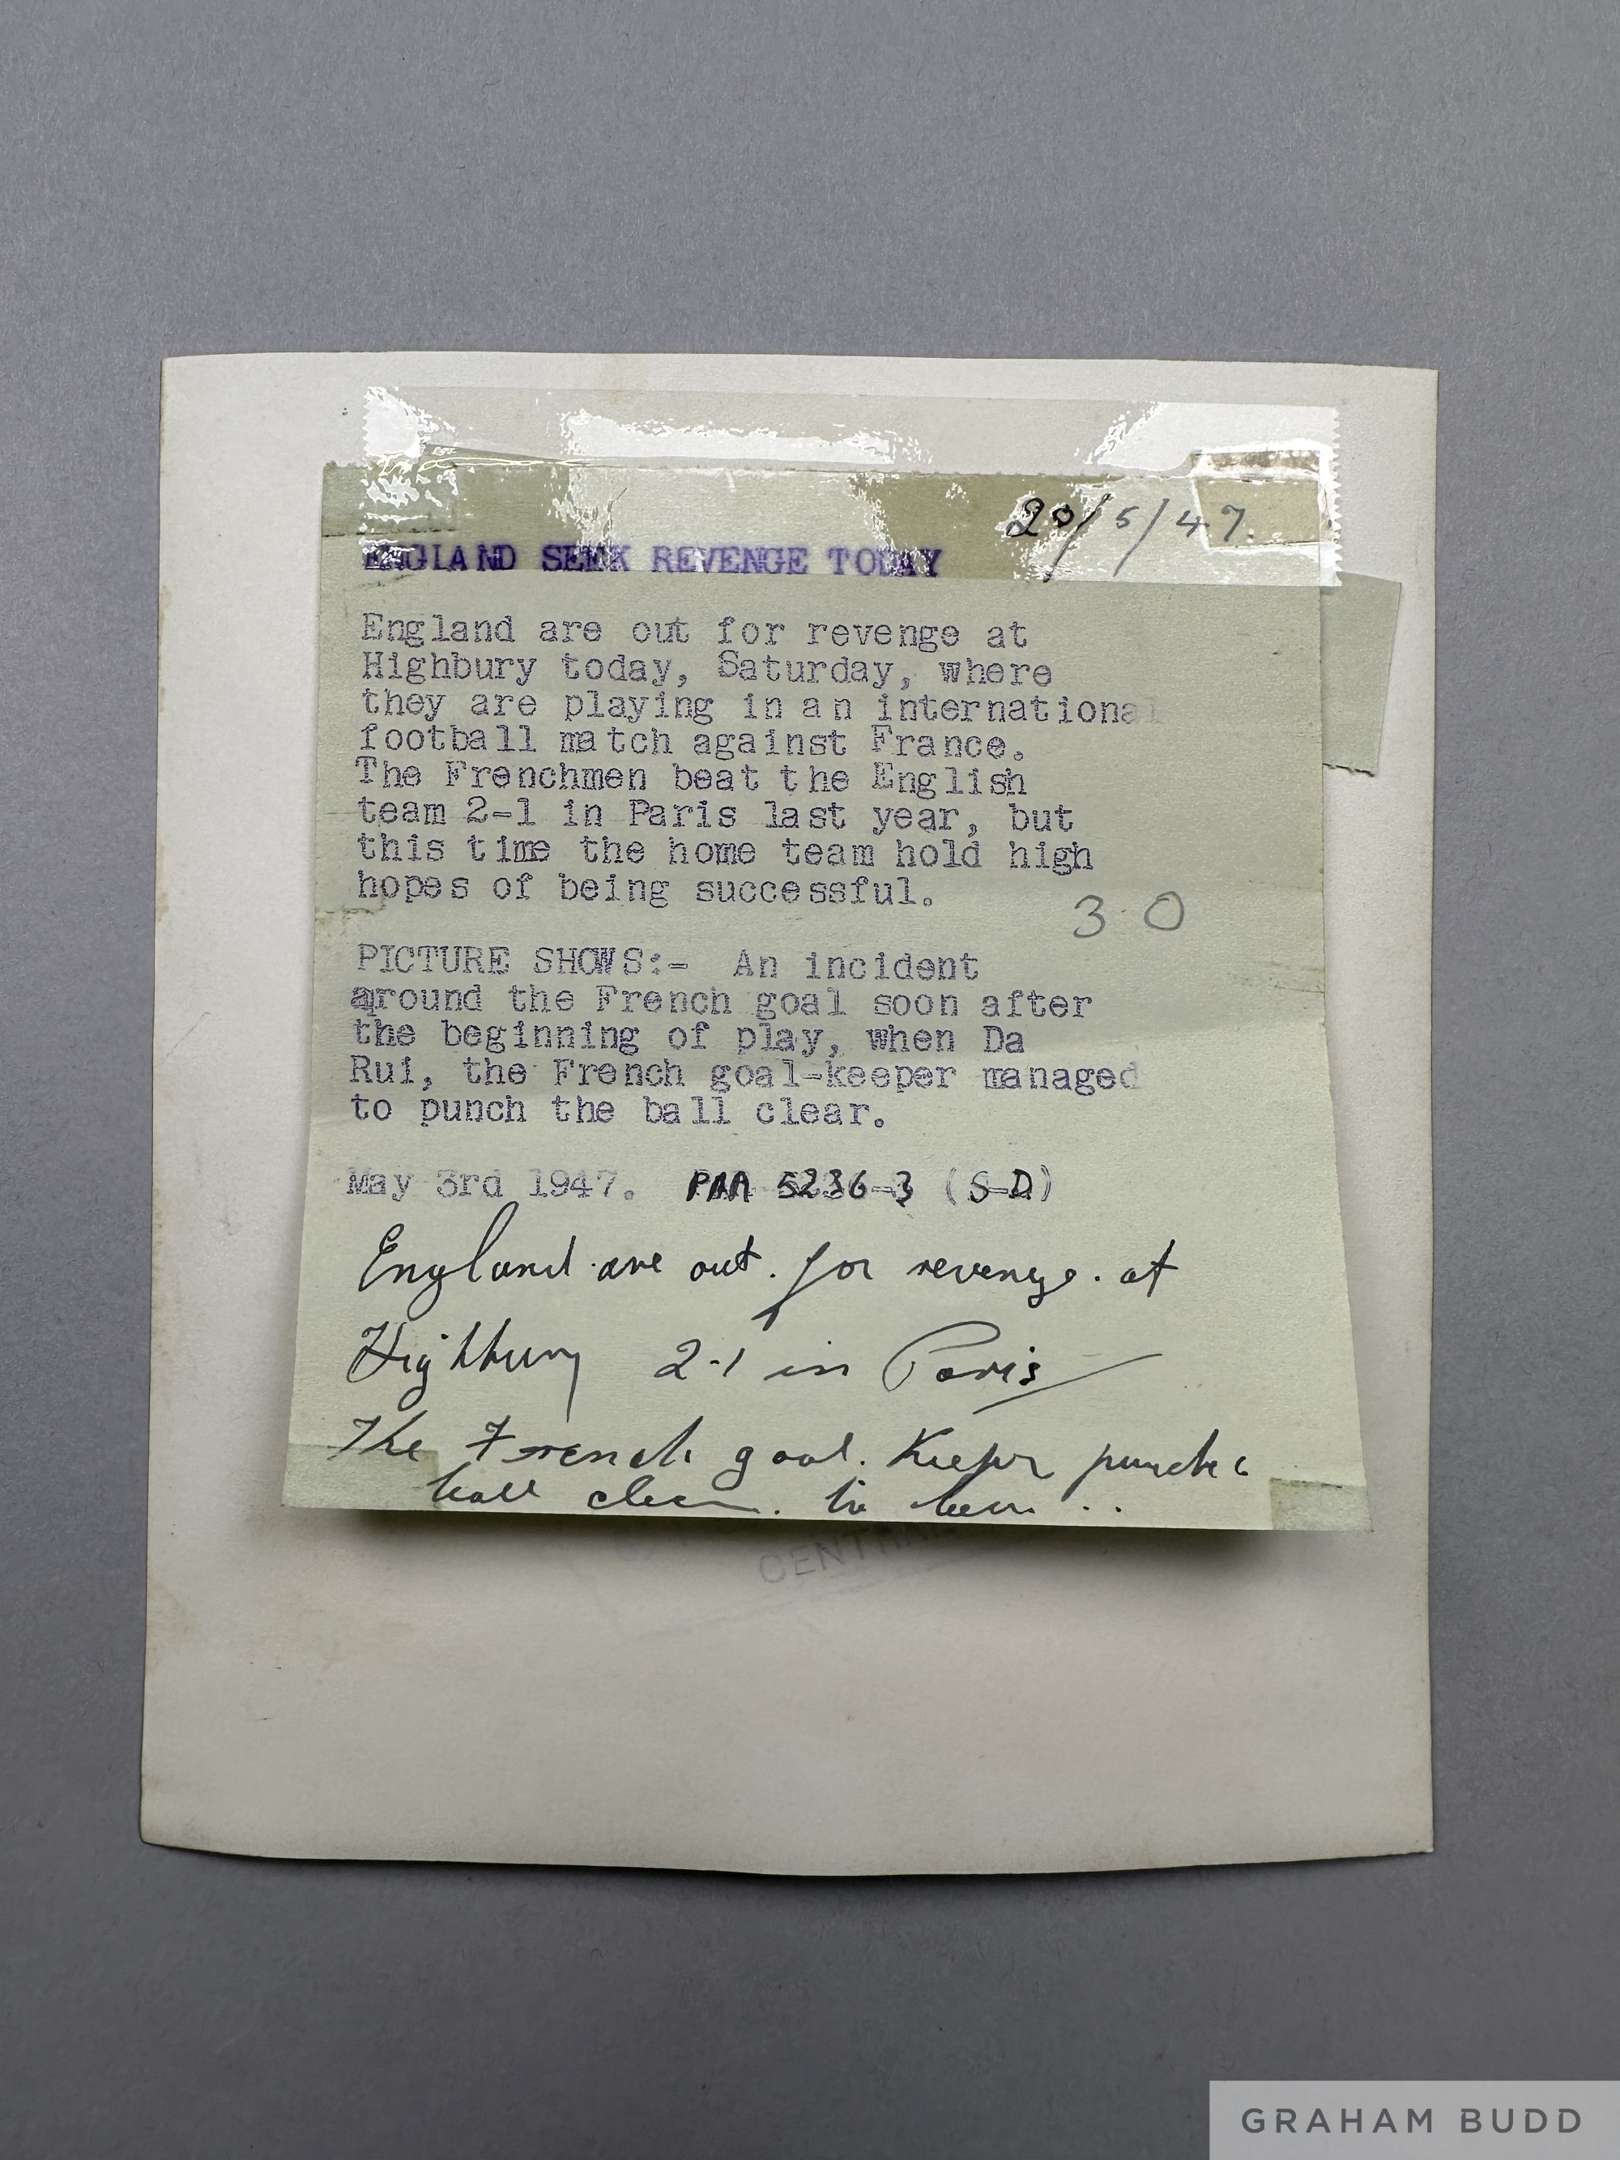 20/5/47.
ENGLAND SEEK REVENGE TODAY
England are out for revenge at
Highbury today, Saturday, where
they are playing in an international
football match against France.
The Frenchmen beat the English
team 2-1 in Paris last year, but
this time the home team hold high
hopes of being successful.
3-0
PICTURE SHOWS:- An incident
around the French goal soon after
the beginning of play, when Da
Rui, the French goal-keeper managed
to punch the ball clear.
May 3rd 1947. PAA 5236-3 (S-D)
England are out for revenge at
Highbury 2-1 in Paris
The French goal Keeper punches
ball clear
CENTRAL
GRAHAM BUDD